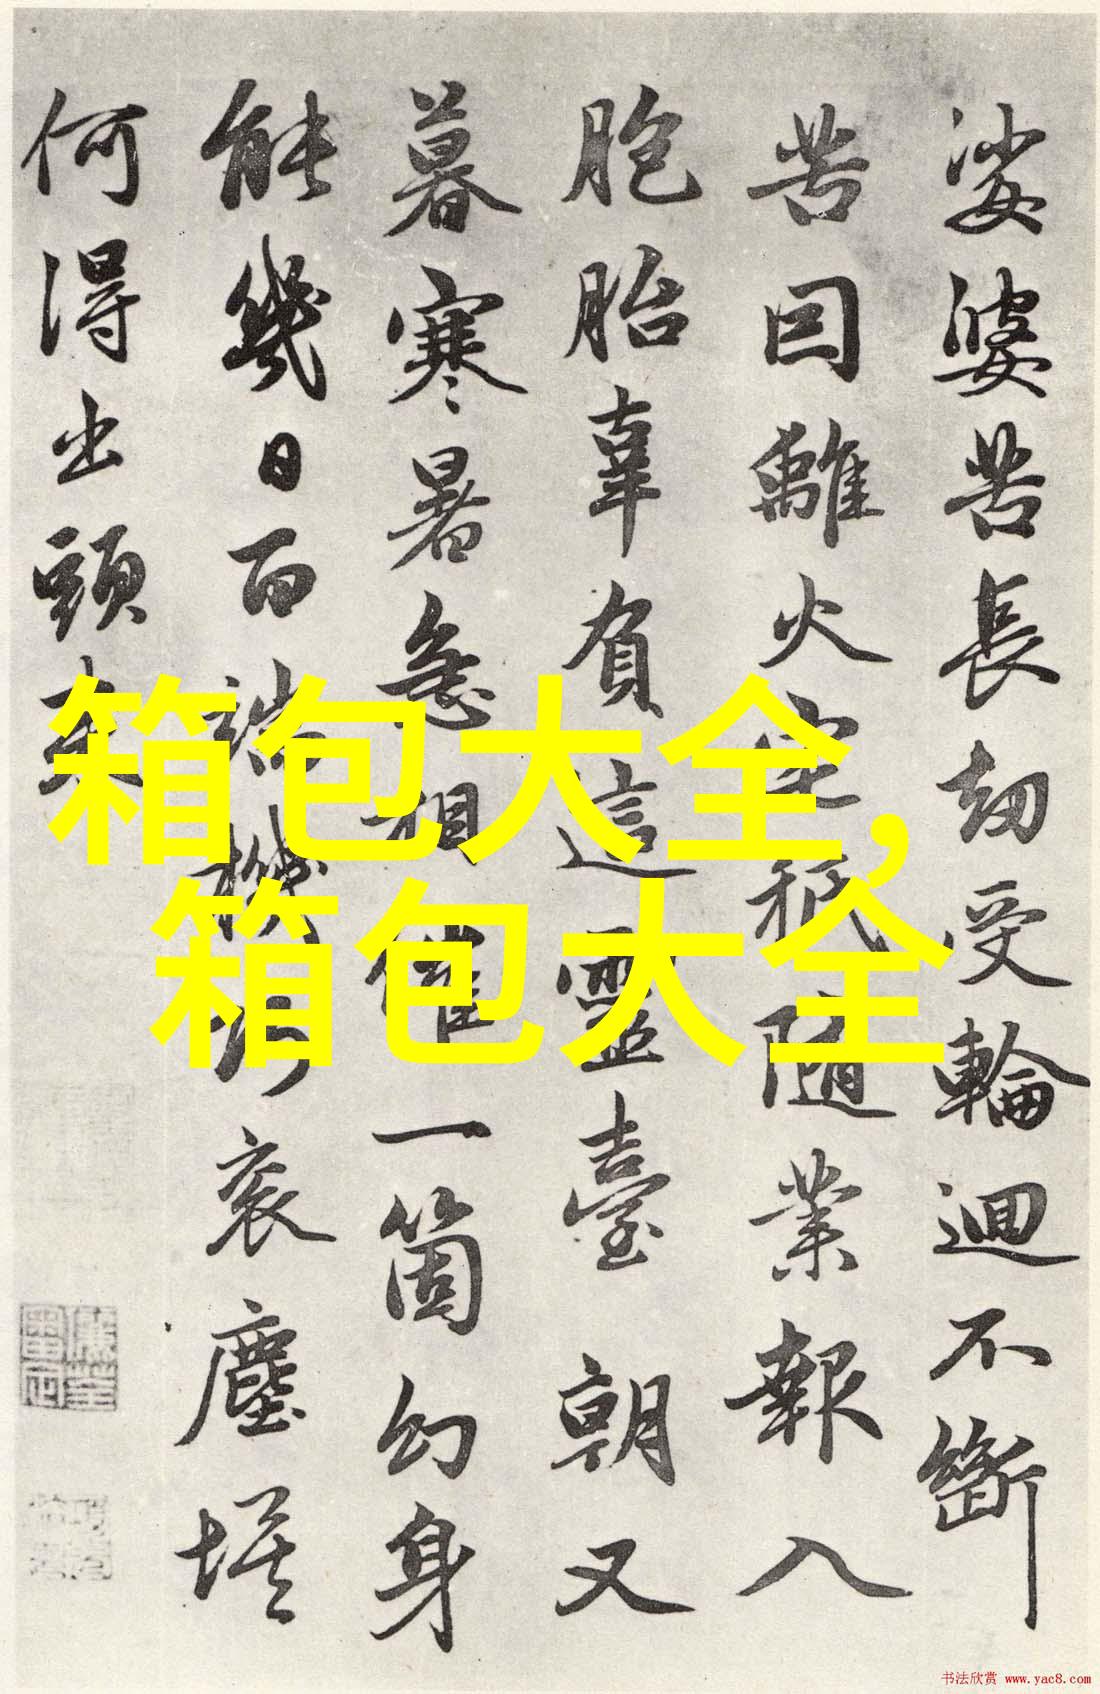 娑婆苦長劫受輪迴不斷
苦因離火宅秖隨業報入
胞胎辜負這靈臺朝又
暮寒暑急相催一箇幻身
能幾日百端機巧衮塵埃
何得出頭来
箱包大全,
箱包大全
书法欣赏 www.yac8.com